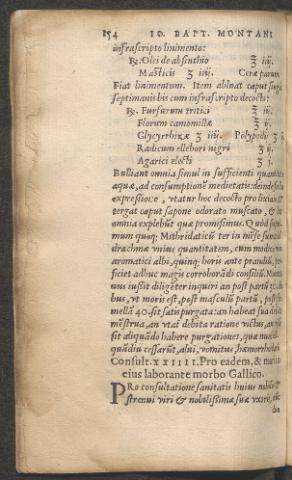 154 IO. BAPT. MONTANI
infrascripto linimento:
℞. Olei de absinthio ℥ iiij.
Masticis ℥ iiij. Ceræ parum
Fiat linimentum. Item abluat caput
septimanis bis cum infrascripto decocto:
℞. Furfurum tritici ℥ ij.
Florum camomillæ ℥ ij.
Glycyrrhizæ ℥ iiij. Polypodij ℥
Radicum ellebori nigri ℥ ij.
Agarici electi ℥ j.
Bulliant omnia simul in sufficienti quantitate
aquæ, ad consumptionẽ medietatis: deinde facta
expressione, vtatur hoc decocto pro lixiuio, &
tergat caput sapone odorato muscato, &
omnia explebũt quæ promisimus. Quòd
mum quoq; Mithridaticũ ter in mẽse sumat
drachmæ vnius quantitatem, cum modico
aromatici albi, quinq; horis ante prandiũ,
ficiet adhuc magis corroborãdi consiliũ.
nus iussit diligẽter inquiri an post partũ
bus, vt moris est, post masculũ partũ, post
mellã 40. sit satis purgata: an habeat sua
mẽstrua, an vtat debita ratione victus, an
sit aliquãdo habere purgationes, quæ
quãdiu cessarũt, alui, vomitus, hæmorrhoidũ
Consult. XXIIII. Pro eadem, & marito
eius laborante morbo Gallico.
PRo consultatione sanitatis huius nobilis &
strenui viri & nobilissimæ suæ vxoris,